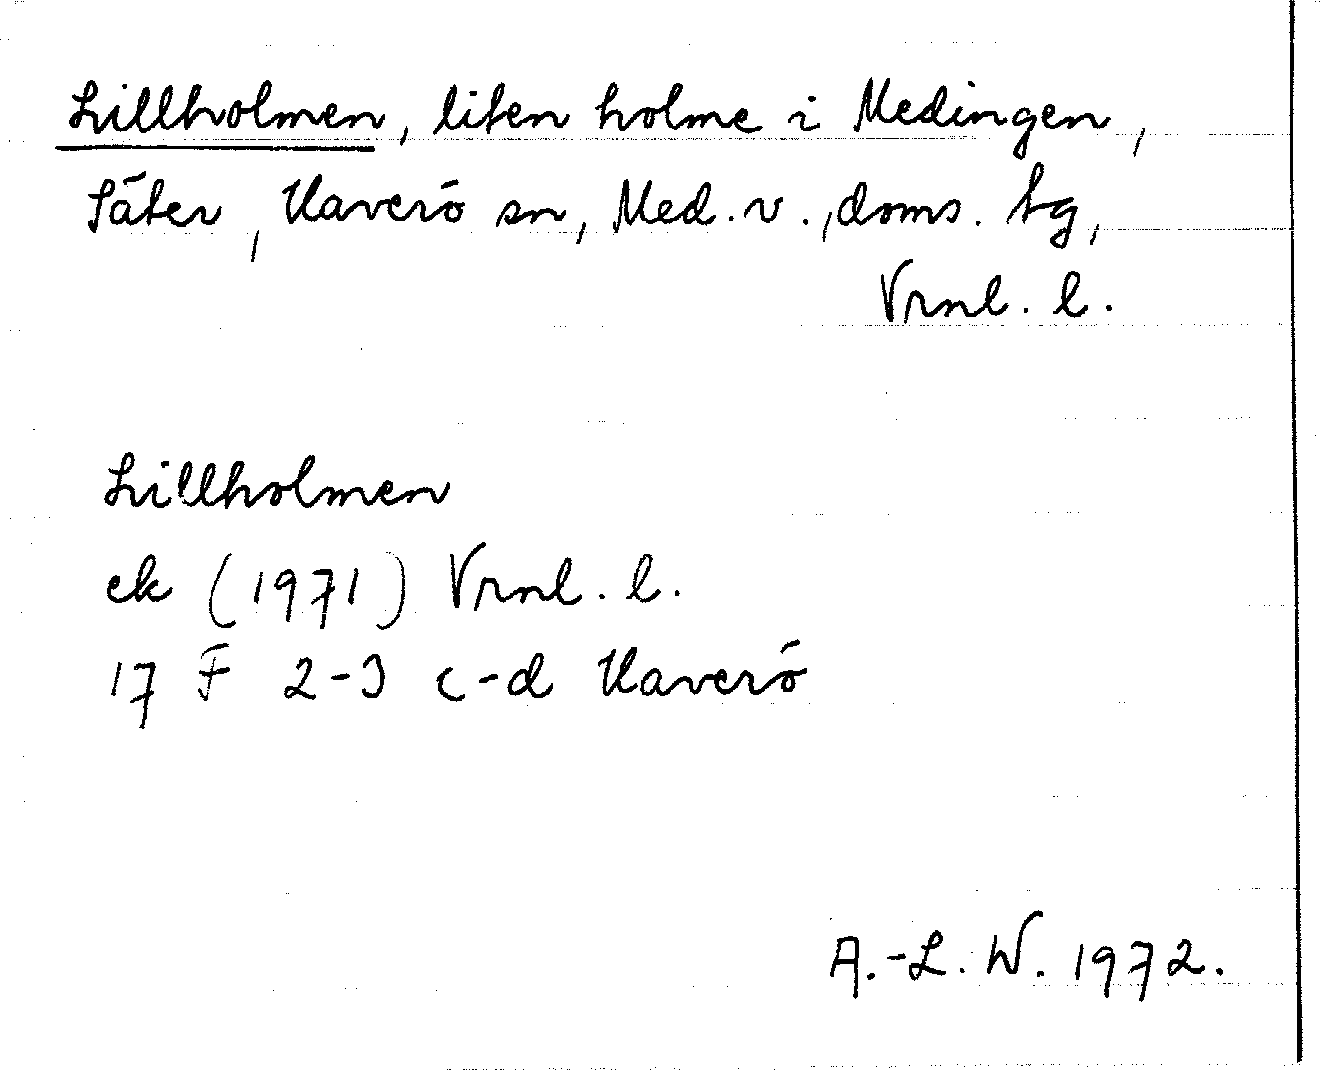 Lillholmen, liten holme i Medingen,
Säter, Haverö sn, Med. v., doms. tg,
Vrnl. l.
Lillholmen
ek (1971) Vrnl. l.
17 F 2-3 c-d Haverö
A.-L. W. 1972.